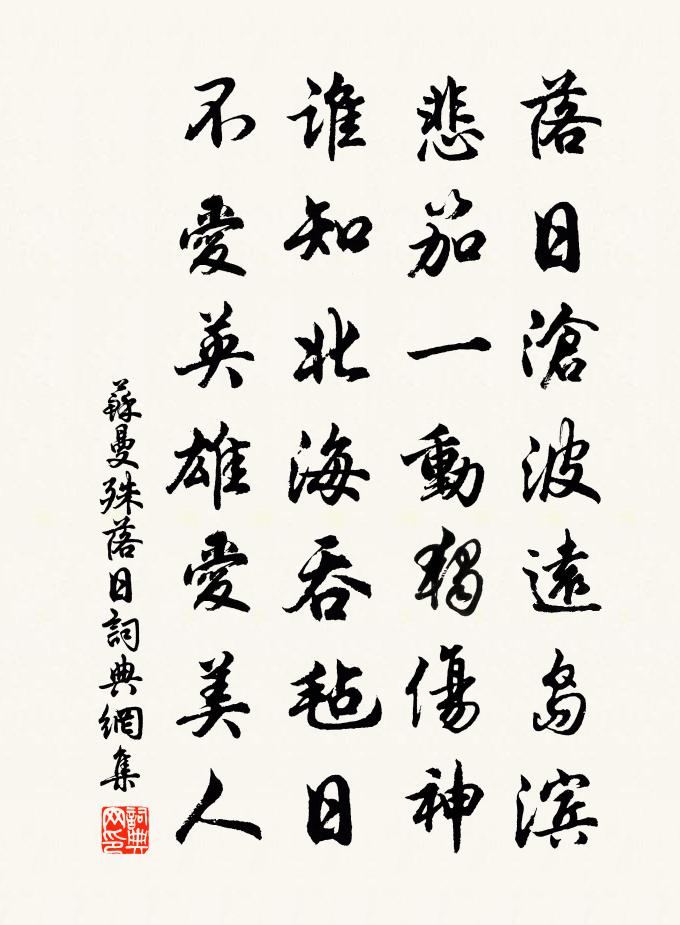 落日滄波遠島滨
悲笳一動獨傷神
誰知北海吞氈日
不愛英雄愛美人
蘇曼殊落日詞典網集
詞典网印